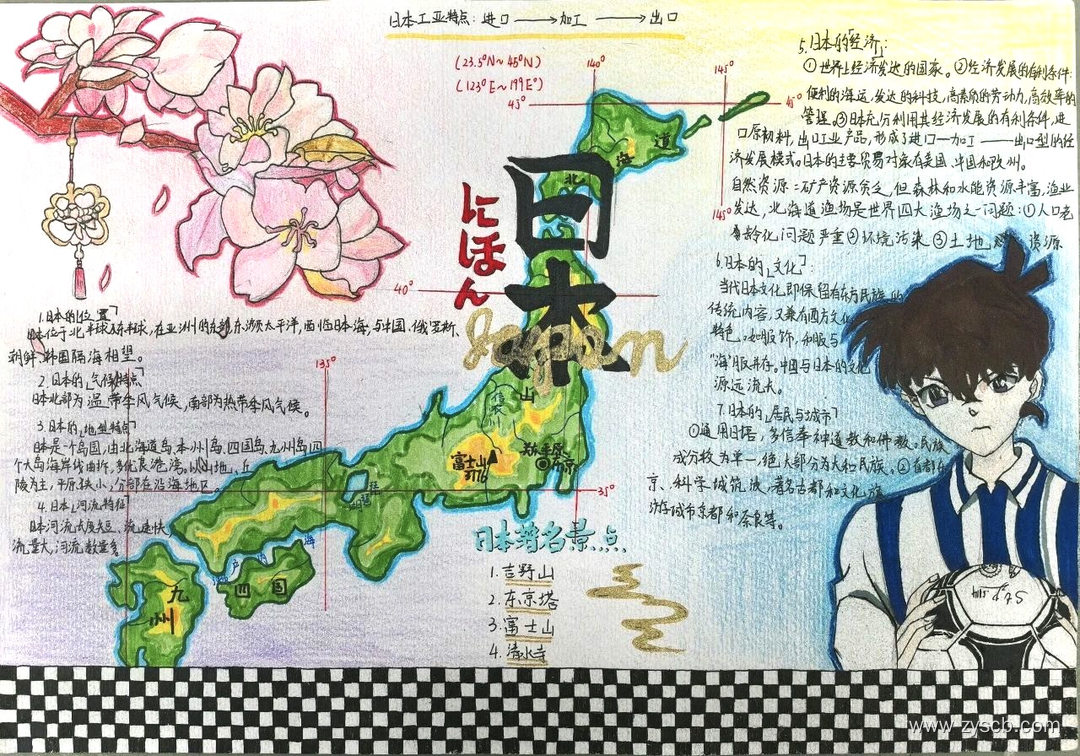 日本工业特点:进口→加工→出口
(23.5°N~45°N)
(123°E~199E°)
140°
145°
45°
45°
北海道
145°
日本
にほん
Japan
40°
135°
35°
山
富士山
3776
东京
四国
九州
1.日本的「位置」
日本位于北半球东半球,在亚洲的东部,东濒太平洋,西临日本海,与中国、俄罗斯、
朝鲜、韩国隔海相望。
2.日本的「气候特点」
日本北部为温带季风气候,南部为热带季风气候。
3.日本的「地型特点」
日本是一个岛国,由北海道岛、本州岛、四国岛、九州岛四
个大岛海岸线曲折,多优良港湾。以山地、丘
陵为主,平原狭小,分部在沿海地区。
4.日本「河流特征」
日本河流流度短、流速快、
流量大,河流数量多
日本著名景点
1.吉野山
2.东京塔
3.富士山
4.清水寺
5.日本的「经济」:
①世界上经济发达的国家。②经济发展的有利条件:
便利的海运,发达的科技,高素质的劳动力,高效率的
管理。③日本充分利用其经济发展的有利条件,进
口原材料,出口工业产品,形成了进口—加工——出口型的经
济发展模式。日本的主要贸易对象在美国、中国和欧州。
自然资源:矿产资源贫乏,但森林和水能资源丰富,渔业
发达,北海道渔场是世界四大渔场之一问题:①人口老
龄化问题严重②环境污染③土地 资源
6.日本的「文化」:
当代日本文化即保留有东方民族的
传统内容,又兼有西方文化
特色。如服饰,和服与
“海”服并存。中国与日本的文化
源远流长。
7.日本的「居民与城市」
①通用日语,多信奉神道教和佛教。民族
成分较为单一,绝大部分为大和民族。②首都东
京、科学城筑波,著名古都和文化旅
游城市京都和奈良等。
www.zyscb.com